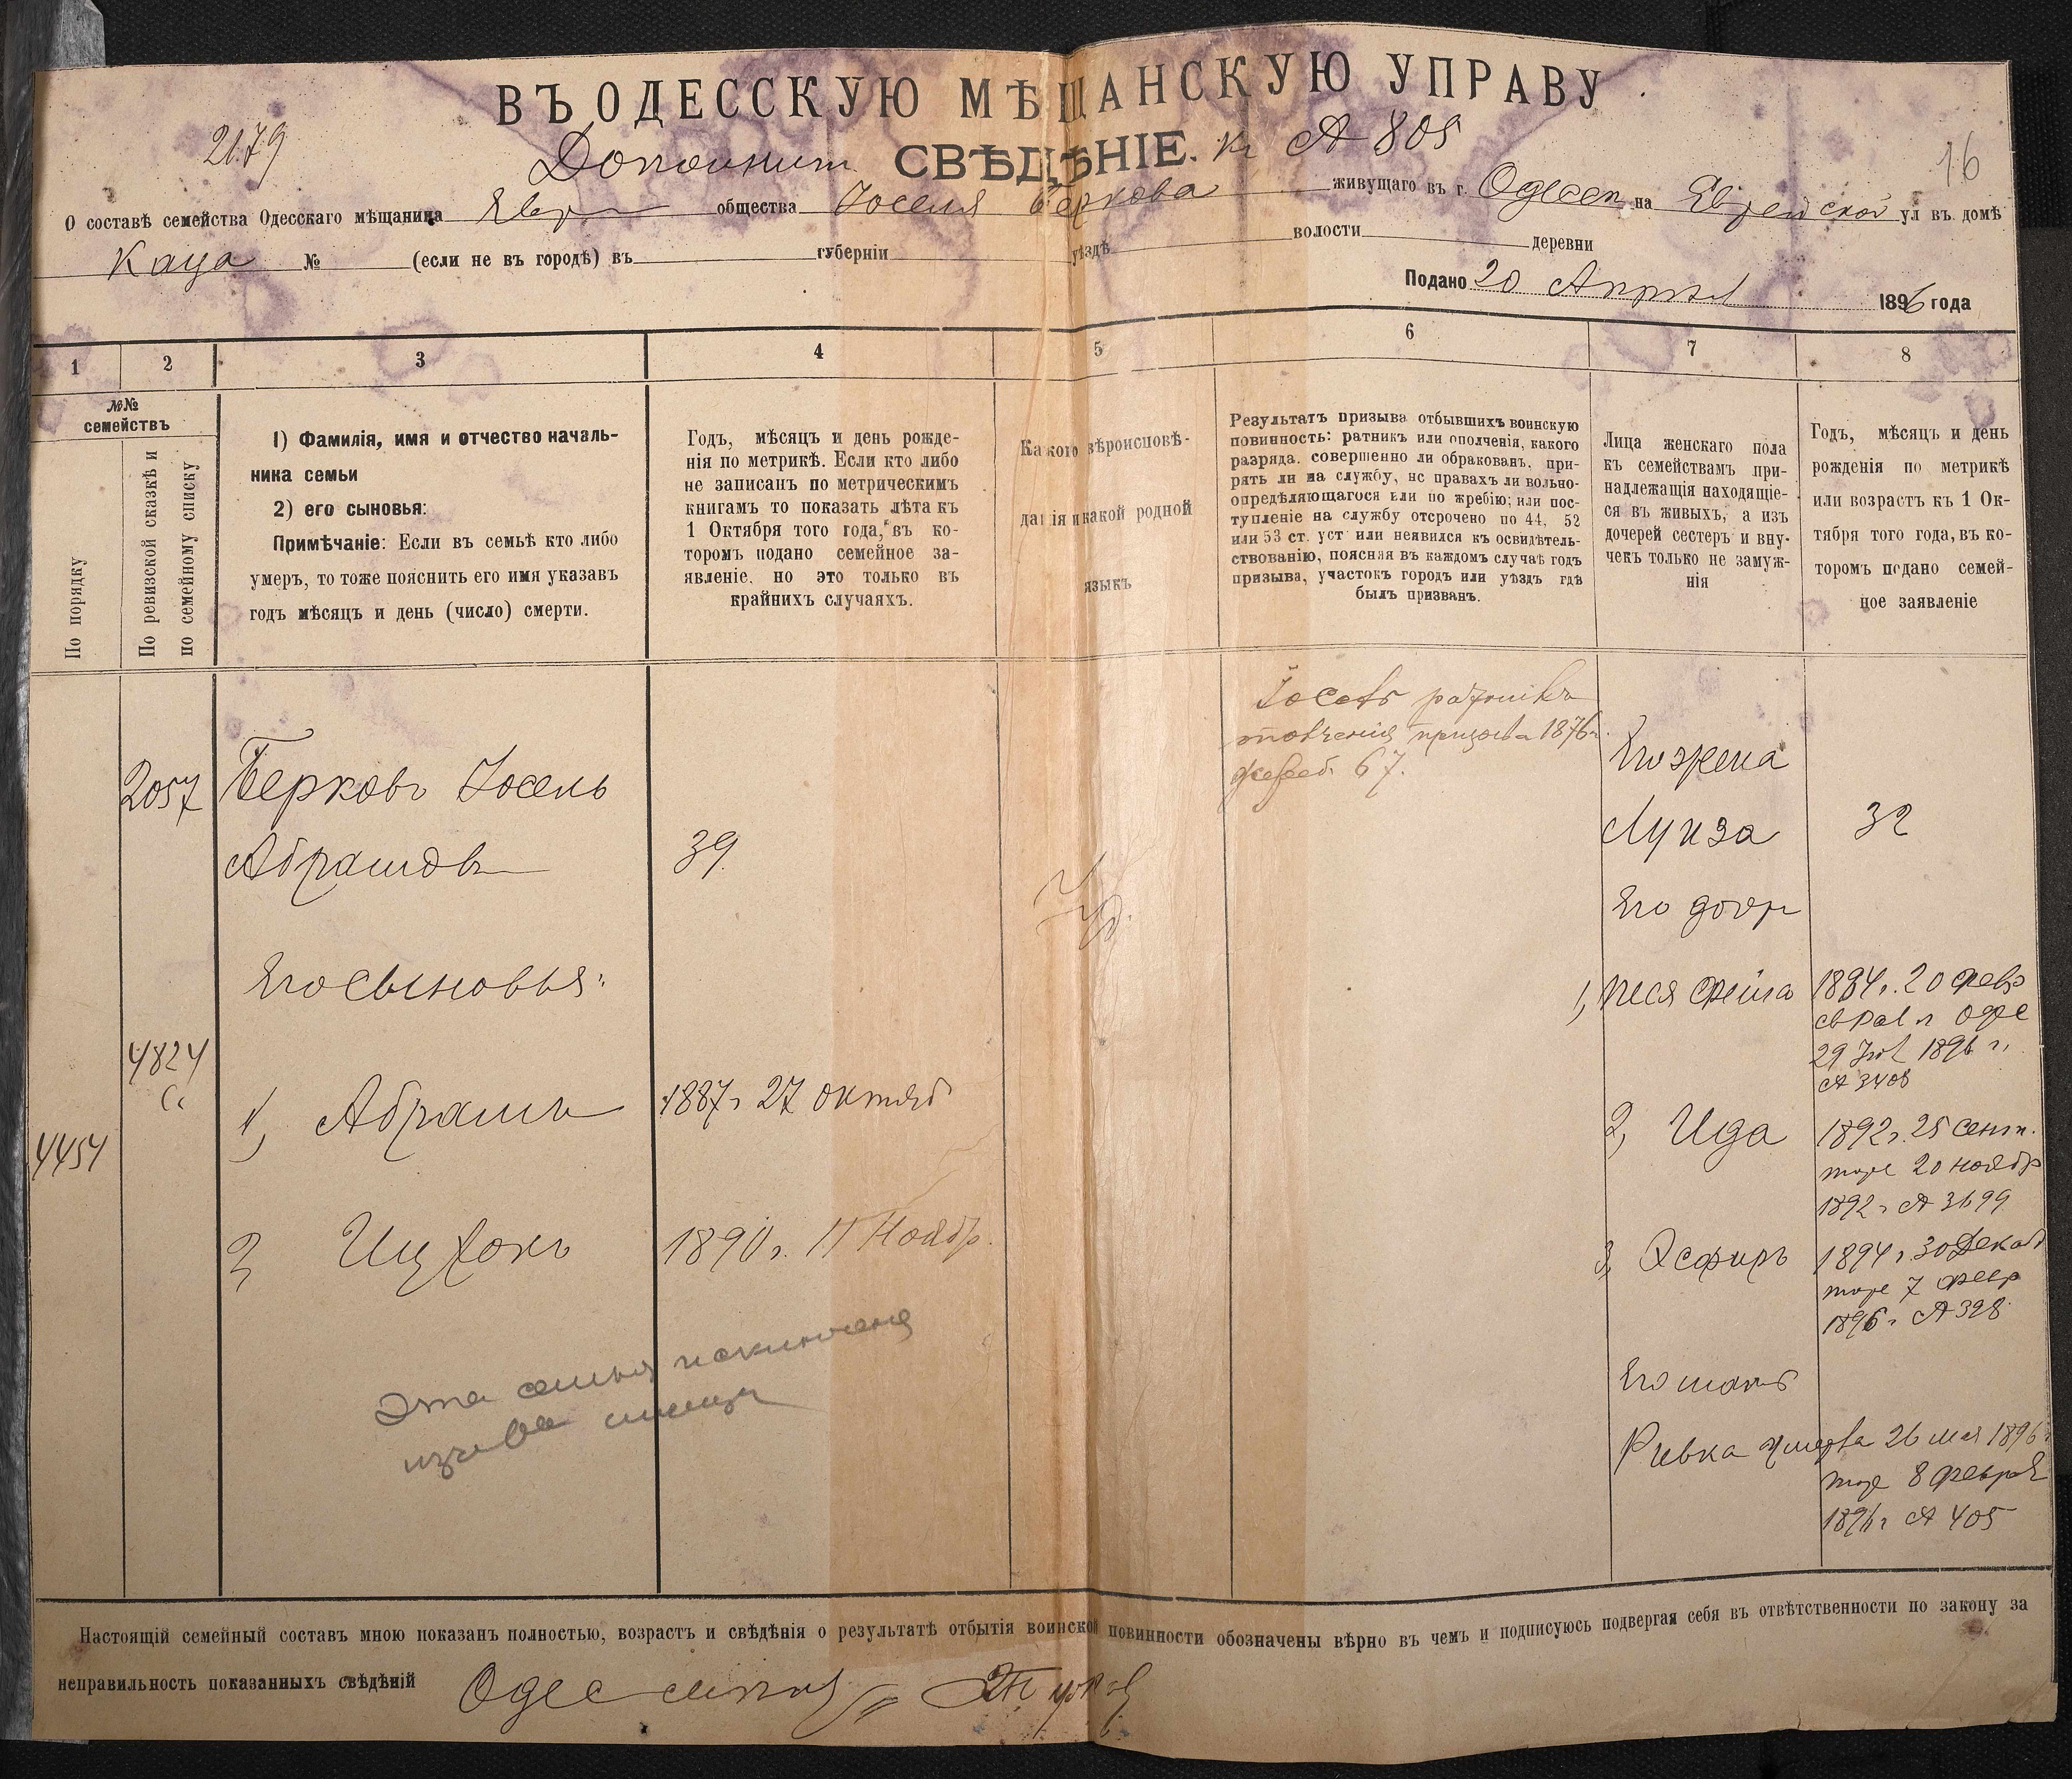 ВЪ ОДЕССКУЮ МѢЩАНСКУЮ УПРАВУ
2179
Дополнит. СВѢДѢНІЕ. къ № 805
16
О составѣ семейства Одесскаго мѣщанина Евр общества Іоселя Беркова живущаго въ г. Одессѣ на Еврейской ул въ домѣ
Каца № (если не въ городѣ) въ губерніи уѣздѣ волости деревни
Подано 20 Апрѣл 1896 года
1 2 3 4 5 6 7 8
№№ семействъ
По порядку
По ревизской сказкѣ и по семейному списку
1) Фамилія, имя и отчество началь-
ника семьи
2) его сыновья:
Примѣчаніе: Если въ семьѣ кто либо
умеръ, то тоже пояснить его имя указавъ
годъ мѣсяцъ и день (число) смерти.
Годъ, мѣсяцъ и день рожде-
нія по метрикѣ. Если кто либо
не записанъ по метрическимъ
книгамъ то показать лѣта къ
1 Октября того года, въ ко-
торомъ подано семейное за-
явленіе, но это только въ
крайнихъ случаяхъ.
Какого вѣроисповѣ-
данія и какой родной
языкъ
Результатъ призыва отбывшихъ воинскую
повинность: ратникъ или ополченія, какого
разряда, совершенно ли обракованъ, при-
нятъ ли на службу, нс правахъ ли вольно-
опредѣляющагося или по жребію; или пос-
тупленіе на службу отсрочено по 44, 52
или 53 ст. уст или неявился къ освидѣтель-
ствованію, поясняя въ каждомъ случаѣ годъ
призыва, участокъ городъ или уѣздъ гдѣ
былъ призванъ.
Лица женскаго пола
къ семействамъ при-
надлежащія находящіе-
ся въ живыхъ, а изъ
дочерей сестеръ и вну-
чекъ только не замуж-
нія
Годъ, мѣсяцъ и день
рожденія по метрикѣ
или возрастъ къ 1 Ок-
тября того года, въ ко-
торомъ подано семей-
ное заявленіе
2057
Берковъ Іосель
Абрамовъ
39
Іуд.
ратникъ
ополченія призыва 1876 г.
жереб. 67.
Его жена
Луиза
32
Его дочр
Его сыновья:
1, Песя Фейга
1884 г. 20 Февр
29 1896 г.
№ 3408
4824
4454
1, Абрамъ
1887 г 27 октяб
2, Ида
1892 г. 25 Сент.
тоже 20 ноябр
1892 г № 3699
2, Ицхокъ
1890 г. 11 Ноябр.
3, Эсфирь
1894 г. 30 Декаб
тоже 7 Февр
1896 г № 328
Эта семья исключена
Его мать
Ривка умерла 26 мая 1896 г
тоже 8 Феврал
1896 г № 405
Настоящій семейный составъ мною показанъ полностью, возрастъ и свѣдѣнія о результатѣ отбытія воинской повинности обозначены вѣрно въ чемъ и подписуюсь подвергая себя въ отвѣтственности по закону за
неправильность показанныхъ свѣдѣній